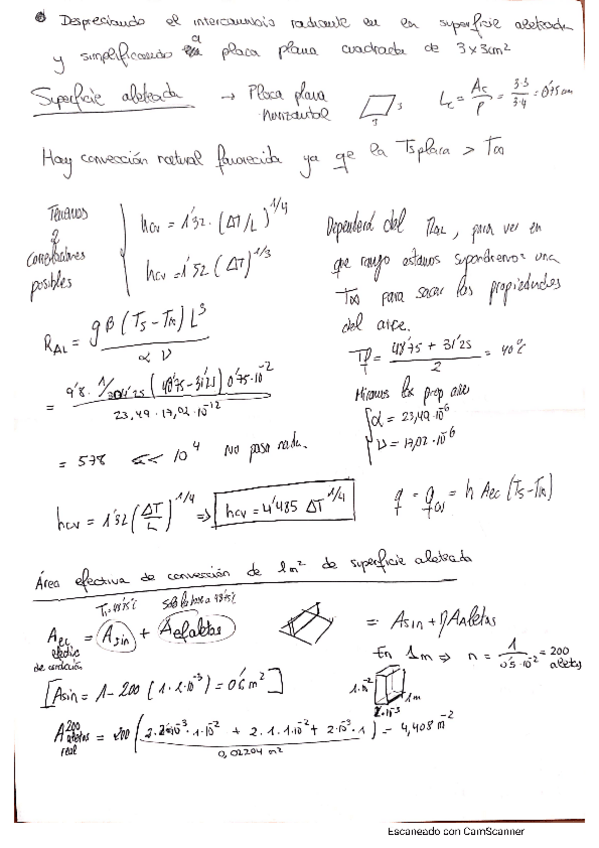 Despreciando el intercambio radiante en la superficie aleteada
y simplificando a placa plana cuadrada de 3x3cm²
Superficie aleteada → Placa plana horizontal
Lc = Ac/P = 3·3/3·4 = 0'75 cm
Hay convección natural favorecida ya qe la Ts placa > T∞
Tenemos 2 correlaciones posibles
hcv = 1'32 · (ΔT/L)^1/4
hcv = 1'52 (ΔT)^1/3
Dependerá del RaL, para ver en
que rango estamos supondremos una
T∞ para sacar las propiedades
del aire.
RAL = gβ(Ts-T∞)L³ / αν
TP = 48'75 + 31'25 / 2 = 40°C
Miramos las prop aire
α = 23,49·10^-6
ν = 17,02·10^-6
(48'75-31'25) 0'75·10^-2
23,49·17,02·10^-12
= 578 << 10⁴ No pasa nada.
hcv = 1'32 (ΔT/L)^1/4 ⇒ hcv = 4'485 ΔT^1/4
= h Aec (Ts-T∞)
Área efectiva de convección de 1m² de superficie aleteada
Aec = Asin + Aefaletas
= Asin + ηAaletas
En 1m ⇒ n = 1 / 0'5·10^-2 = 200 aletas
[Asin = 1-200 (1·2·10^-3) = 0'6 m²]
1·10^-2
1m
2·10^-3
A 200 aletas real = 200 (2·2·10^-3·1·10^-2 + 2·1·1·10^-2 + 2·10^-3·1) = 4,408 m^-2
0,02204 m²
Escaneado con CamScanner